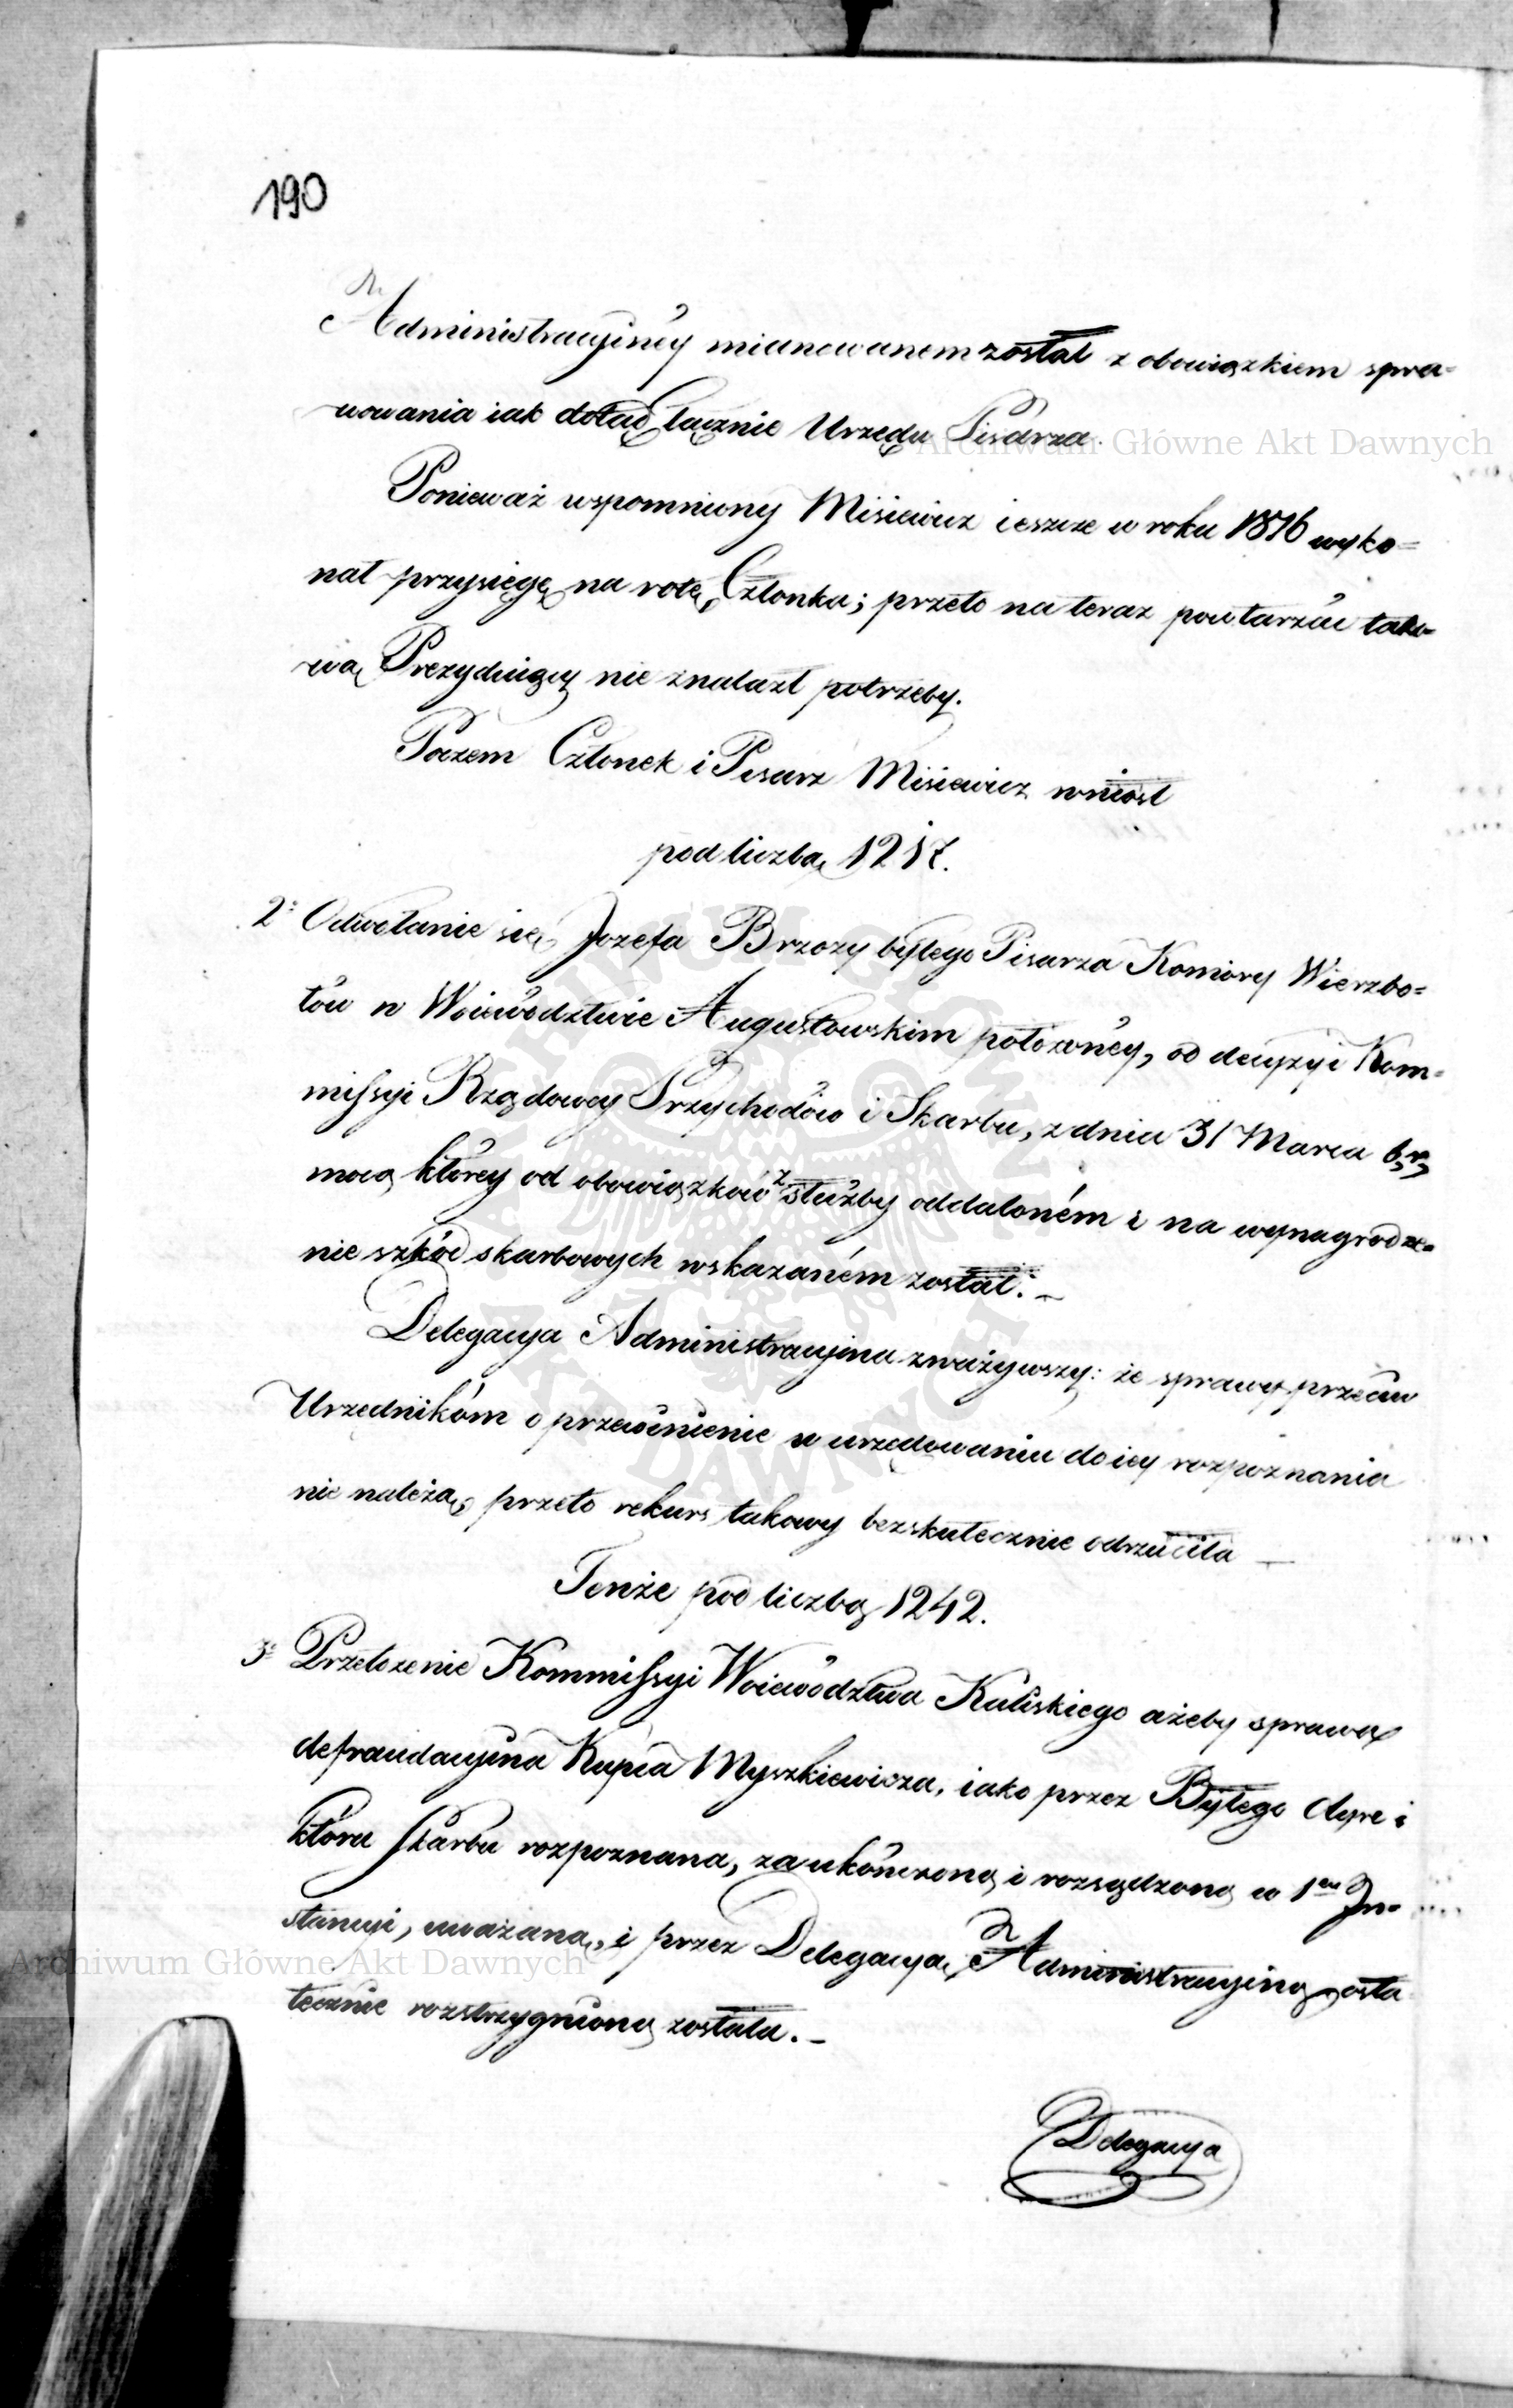 190
Administracyiney mianowanem został z obowiązkiem spra=
wowania iak dotąd łącznie Urzędu Pisarza.
Archiwum Główne Akt Dawnych
Ponieważ wspomniony Misiewicz ieszcze w roku 1816 wyko=
nał przysięgę na rotę Członka; przeto na teraz powtarzać tako=
wą Prezyduiący nie znalazł potrzeby.
Poczem Członek i Pisarz Misiewicz wniósł
pod liczbą 1217.
2º Odwołanie się Jozefa Brzozy byłego Pisarza Komory Wierzbo=
łów w Woiewództwie Augustowskim położoney, od decyzyi Kom=
missyi Rządowey Przychodów i Skarbu, z dnia 31 Marca b, r,
mocą którey od obowiązków z służby oddaloném i na wynagrodze=
nie szkód skarbowych wskazaném został. –
Delegacya Administracyina zważywszy: że sprawy przeciw
Urzędnikóm o przewinienie w urzędowaniu do iey rozpoznania
nie należą, przeto rekurs takowy bezskutecznie odrzuciła —
Tenże pod liczbą 1242.
3º Przełozenie Kommissyi Woiewództwa Kaliskiego ażeby sprawa
defraudacyina Kupca Myszkiewicza, iako przez Byłego Dyre :
ktora Skarbu rozpoznana, za ukończoną i rozsądzoną w 1ey In=
stancyi, uważaną, i przez Delegacyą Administracyiną osta
Archiwum Główne Akt Dawnych
tecznie rozstrzygnioną została. –
Delegacya
ARCHIWUM GŁÓWNE AKT DAWNYCH